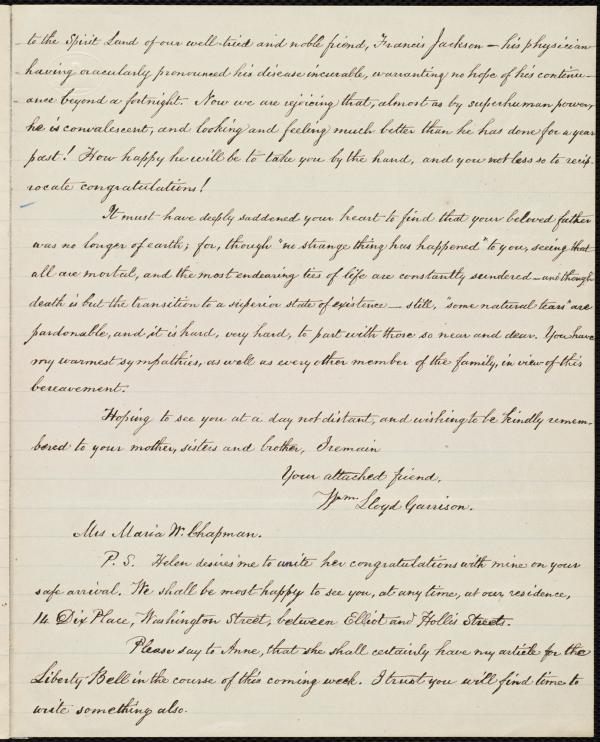 to the Spirit Land of our well-tried and noble friend, Francis Jackson — his physician
having oracularly pronounced his disease incurable, warranting no hope of his continu-
-ance beyond a fortnight. Now we are rejoicing that, almost as by superhuman power,
he is convalescent, and looking and feeling much better than he has done for a year
past! How happy he will be to take you by the hand, and you not less so to recip-
rocate congratulations!
It must have deeply saddened your heart to find that your beloved father
was no longer of earth; for, though "no strange thing has happened" to you, seeing that
all are mortal, and the most endearing ties of life are constantly sundered — and though
death is but the transition to a superior state of existence — still, "some natural tears" are
pardonable, and it is hard, very hard, to part with those so near and dear. You have
my warmest sympathies, as well as every other member of the family, in view of this
bereavement.
Hoping to see you at a day not distant, and wishing to be kindly remem-
bered to your mother, sisters and brother, I remain
Your attached friend,
Wm. Lloyd Garrison.
Mrs Maria W. Chapman.
P. S. Helen desires me to unite her congratulations with mine on your
safe arrival. We shall be most happy to see you, at any time, at our residence,
14 Dix Place, Washington Street, between Elliot and Hollis Streets.
Please say to Anne, that she shall certainly have my article for the
Liberty Bell in the course of this coming week. I trust you will find time to
write something also.